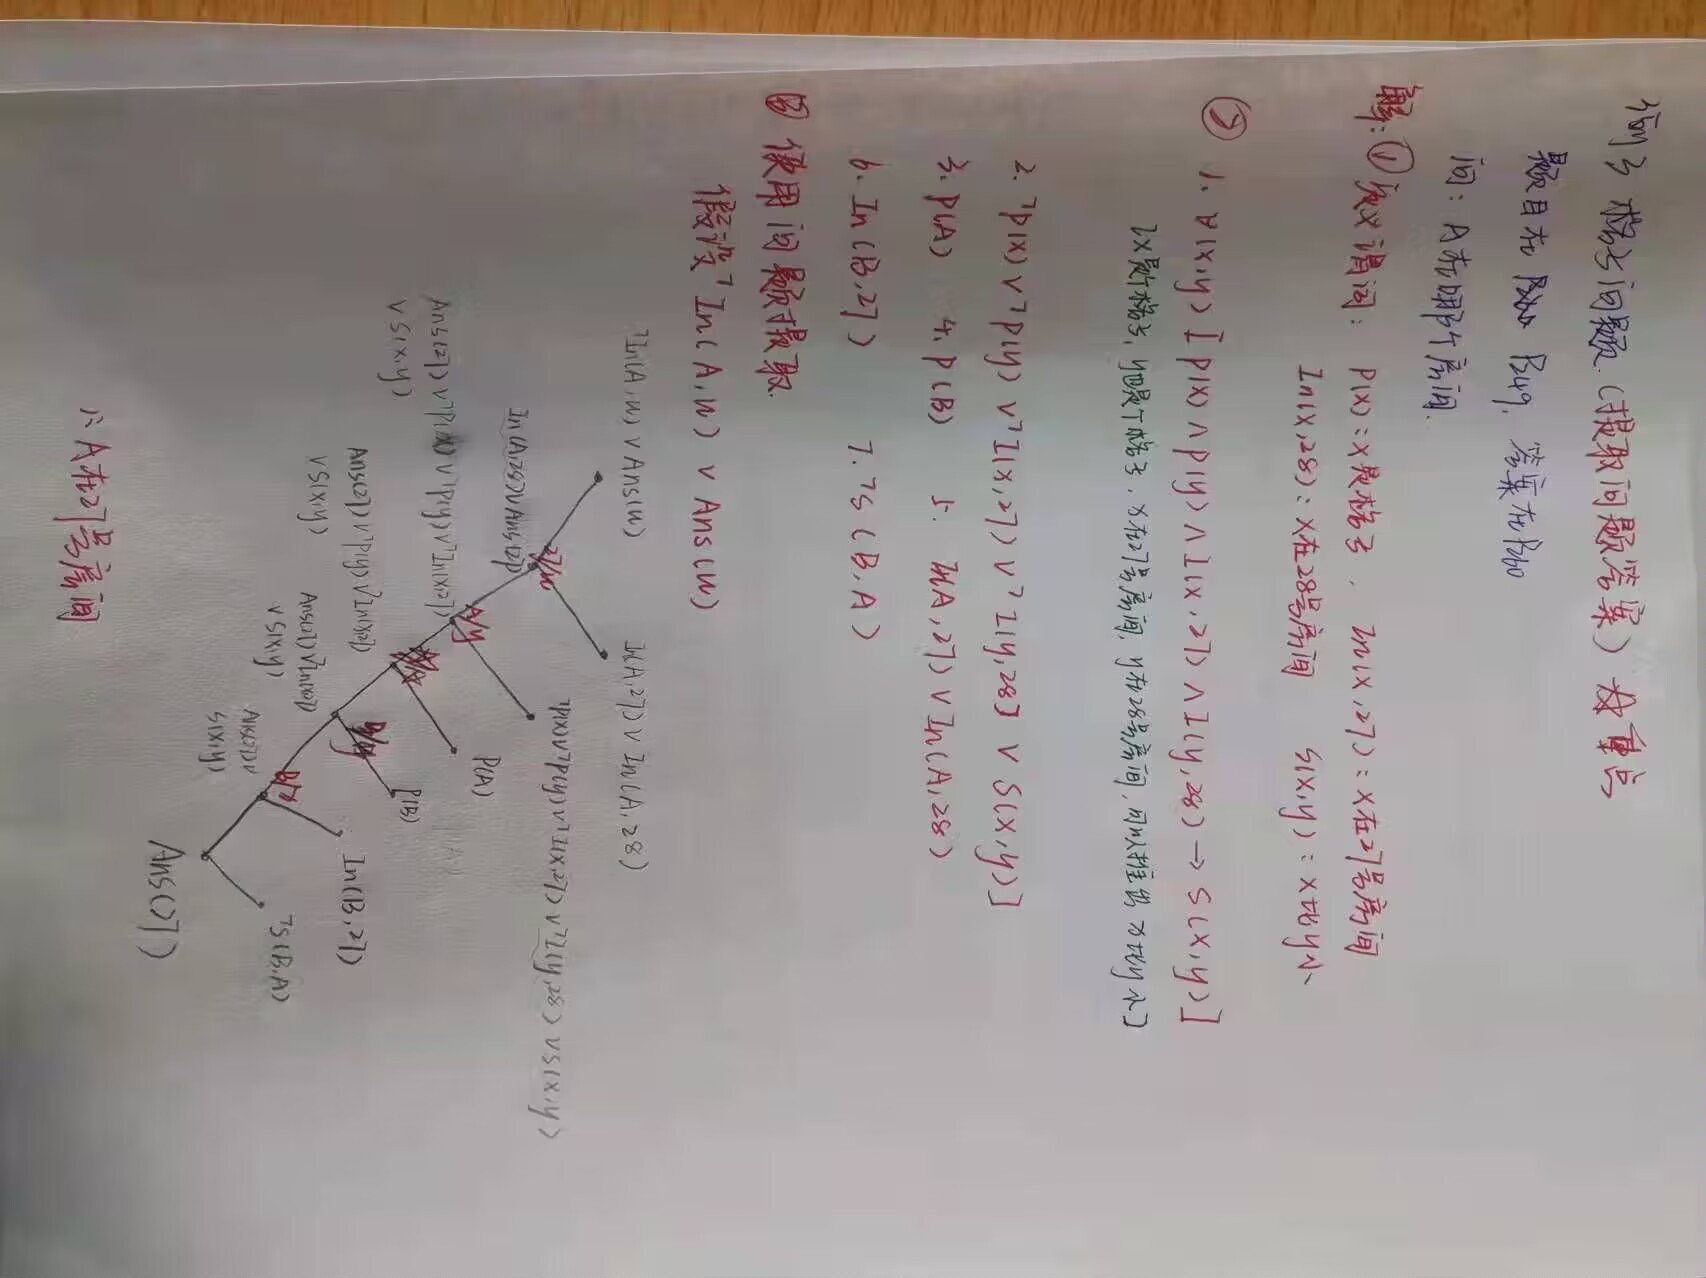 例3 格子问题.(提取问题答案) 重点
题目在 P249, 答案在P260
问: A在哪个房间.
解: ① 定义谓词: P(x):x是格子. In(x,27):x在27号房间
In(x,28):x在28号房间 S(x,y):x比y小
② 1. ∀(x,y)[P(x)∧P(y)∧I(x,27)∧I(y,28)→S(x,y)]
[x是个格子,y也是个格子,x在27号房间,y在28号房间,可以推出x比y小]
2. ¬P(x)∨¬P(y)∨¬I(x,27)∨¬I(y,28]∨S(x,y)]
3. P(A) 4. P(B) 5. In(A,27)∨In(A,28)
6. In(B,27) 7. ¬S(B,A)
③ 使用问题提取.
假设¬In(A,u)∨Ans(u)
¬In(A,u)∨Ans(u) In(A,27)∨In(A,28)
27/u
¬P(x)∨¬P(y)∨¬I(x,27)∨¬I(y,28)∨S(x,y)
In(A,28)∨Ans(27)
A/y
P(A)
Ans(27)∨¬P(x)∨¬P(y)∨¬In(x,27)
∨S(x,y)
P(B)
Ans(27)∨¬P(y)∨¬In(x,27)
∨S(x,y)
In(B,27)
Ans(27)∨¬In(x,27)
∨S(x,y)
B/x
¬S(B,A)
Ans(27)∨
S(x,y)
Ans(27)
∴A在27号房间